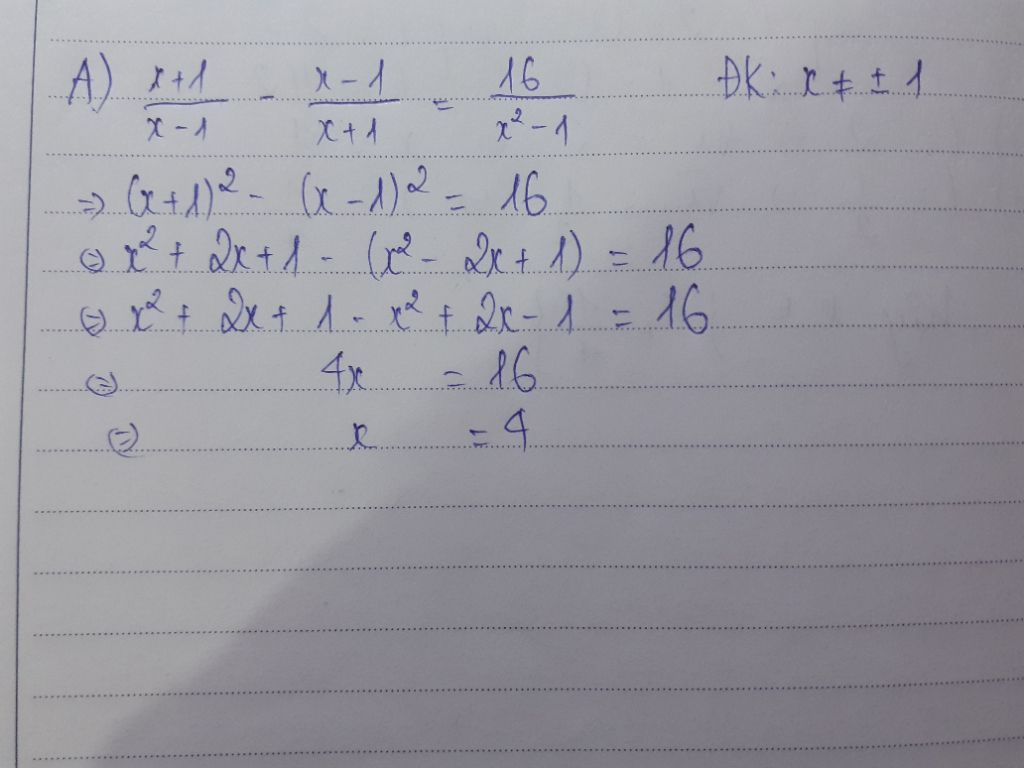 A) x+1/x-1 - x-1/x+1 = 16/x²-1 ĐK: x ≠ ± 1
⇒ (x+1)² - (x-1)² = 16
⇔ x² + 2x+1 - (x² - 2x+1) = 16
⇔ x² + 2x + 1 - x² + 2x - 1 = 16
⇔ 4x = 16
⇔ x = 4